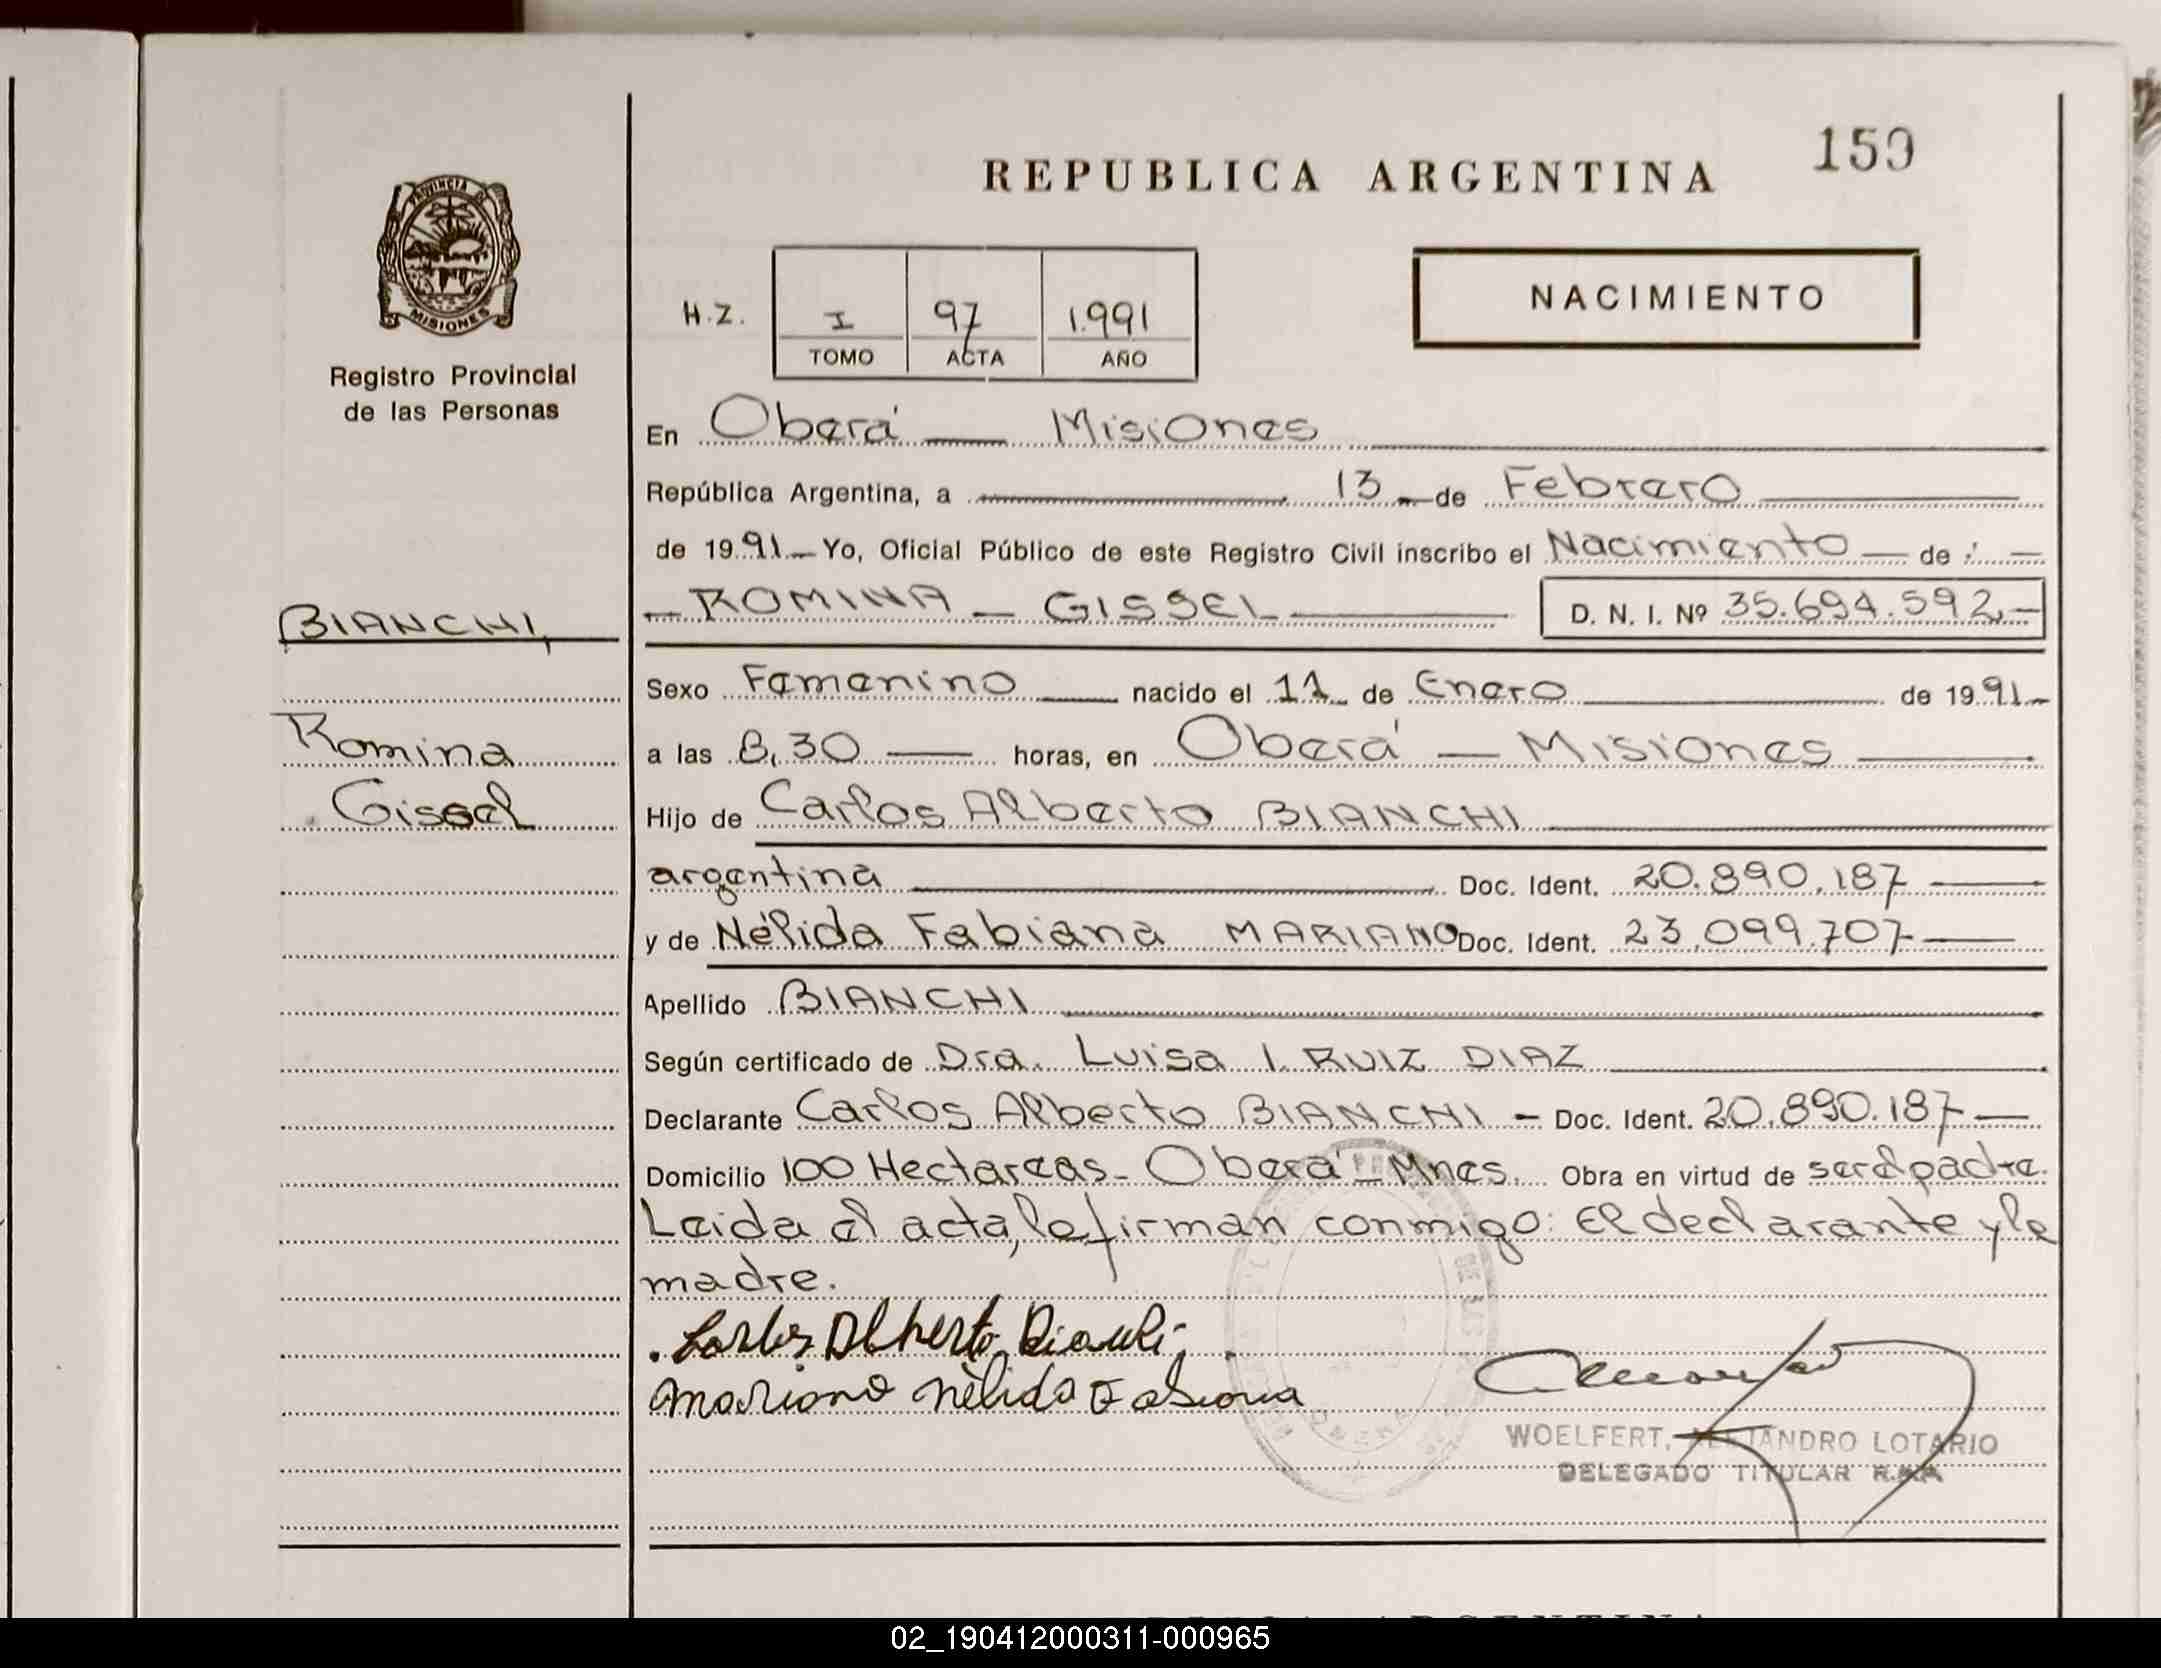 159
REPUBLICA ARGENTINA
PROVINCIA DE
MISIONES
Registro Provincial
de las Personas
NACIMIENTO
H.Z. I 97 1.991
TOMO ACTA AÑO
En Oberá — Misiones
República Argentina, a 13 de Febrero
de 1991 — Yo, Oficial Público de este Registro Civil inscribo el Nacimiento — de :
BIANCHI,
— ROMINA — GISSEL — D. N. I. Nº 35.694.592.—
Sexo Femenino — nacido el 11 de Enero — de 1991.—
Romina
a las 8,30 — horas, en Oberá — Misiones —
Gissel
Hijo de Carlos Alberto BIANCHI
argentina — Doc. Ident. 20.890.187 —
y de Nélida Fabiana MARIANO Doc. Ident. 23.099.707 —
Apellido BIANCHI
Según certificado de Dra. Luisa I. RUIZ DIAZ
Declarante Carlos Alberto BIANCHI - Doc. Ident. 20.890.187 —
Domicilio 100 Hectareas - Oberá - Mnes. Obra en virtud de ser el padre.
Leida el acta, la firman conmigo: El declarante y la
madre.
Carlos Alberto Bianchi
Mariano Nélida Fabiana
WOELFERT, ALEJANDRO LOTARIO
DELEGADO TITULAR
02_190412000311-000965